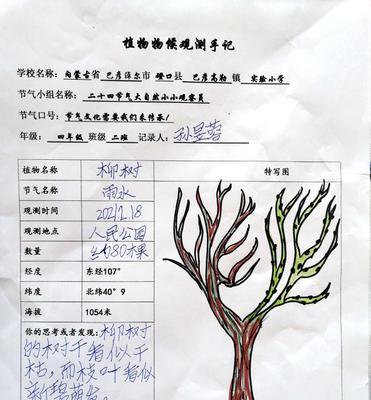 植物物候观测手记
学校名称：内蒙古省 巴彦淖尔市 磴口县 巴彦高勒镇 实验小学
节气小组名称：二十四节气大自然小小观察员
节气口号：节气文化需要我们来传承！
年级：四年级 班级 二班 记录人：孙昱蓉
植物名称 柳树 特写图
节气名称 雨水
观测时间 2021.2.18
观测地点 人民公园
数量 约80棵
经度 东经107°
纬度 北纬40°9
海拔 1054米
你的思考或者发现：柳树
的树干看似干
枯，而枝叶看似
新碧萌发。